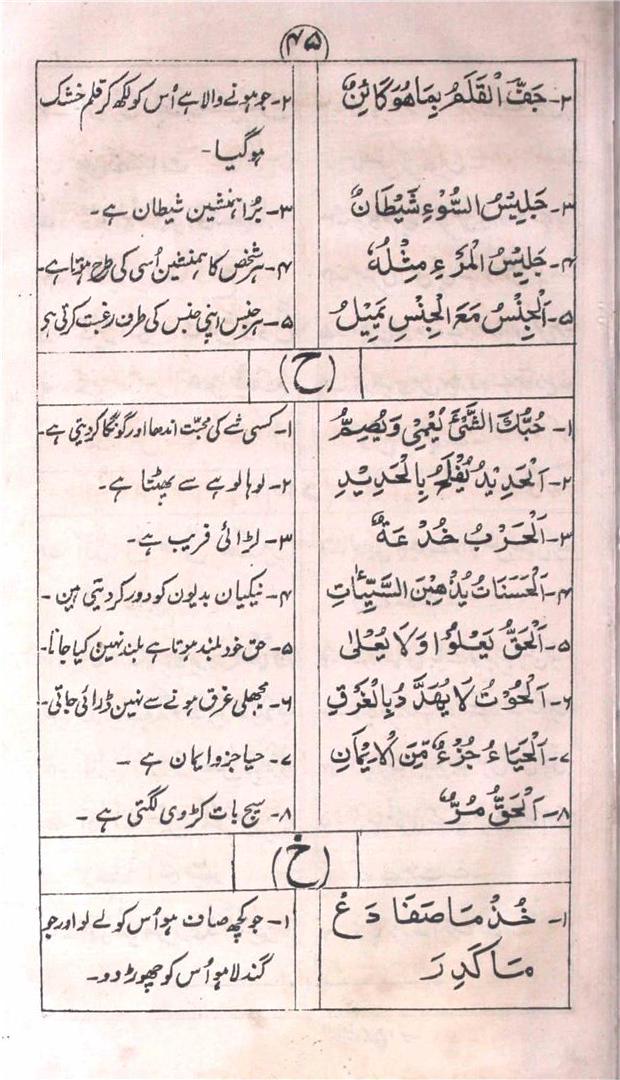 ۴۵
۲- جَفَّ الْقَلَمُ بِمَا هُوَ كَائِنٌ
۲- جو ہونے والا ہے اُس کو لکھ کر قلم خشک
ہو گیا-
۳- جَلِيْسُ السُّوْءِ شَيْطَانٌ
۳- بُرا ہمنشین شیطان ہے-
۴- جَلِيْسُ الْمَرْءِ مِثْلُهٗ
۴- ہر شخص کا ہمنشین اُسی کی طرح ہوتا ہے-
۵- اَلْجِنْسُ مَعَ الْجِنْسِ يَمِيْلُ
۵- ہر جنس اپنی جنس کی طرف رغبت کرتی ہی
(ح)
۱- حُبُّكَ الشَّيْئَ يُعْمِىْ وَيُصِمُّ
۱- کسی شے کی محبّت اندھا اور گونگا کر دیتی ہے-
۲- اَلْحَدِيْدُ يُفْلَحُ بِالْحَدِيْدِ
۲- لوہا لوہے سے پھٹتا ہے-
۳- اَلْحَرْبُ خُدْعَةٌ
۳- لڑائی فریب ہے-
۴- اَلْحَسَنَاتُ يُذْهِبْنَ السَّيِّئَاتِ
۴- نیکیان بدیون کو دور کر دیتی ہین-
۵- اَلْحَقُّ يَعْلُوْا وَلَا يُعْلىٰ
۵- حق خود بلند ہوتا ہے بلند نہین کیا جاتا-
۶- اَلْحُوْتُ لَا يُهَدَّدُ بِالْغَرَقِ
۶- مچھلی غرق ہونے سے نہین ڈرائی جاتی-
۷- اَلْحَيَاءُ جُزْءٌ مِّنَ الْاِيْمَانِ
۷- حیا جزو ایمان ہے-
۸- اَلْحَقُّ مُرٌّ
۸- سچ بات کڑوی لگتی ہے-
(خ)
۱- خُذْ مَا صَفَا دَعْ
مَا كَدِرَ
۱- جو کچھ صاف ہو اُس کو لے لو اور جو
گندلا ہو اُس کو چھوڑ دو-